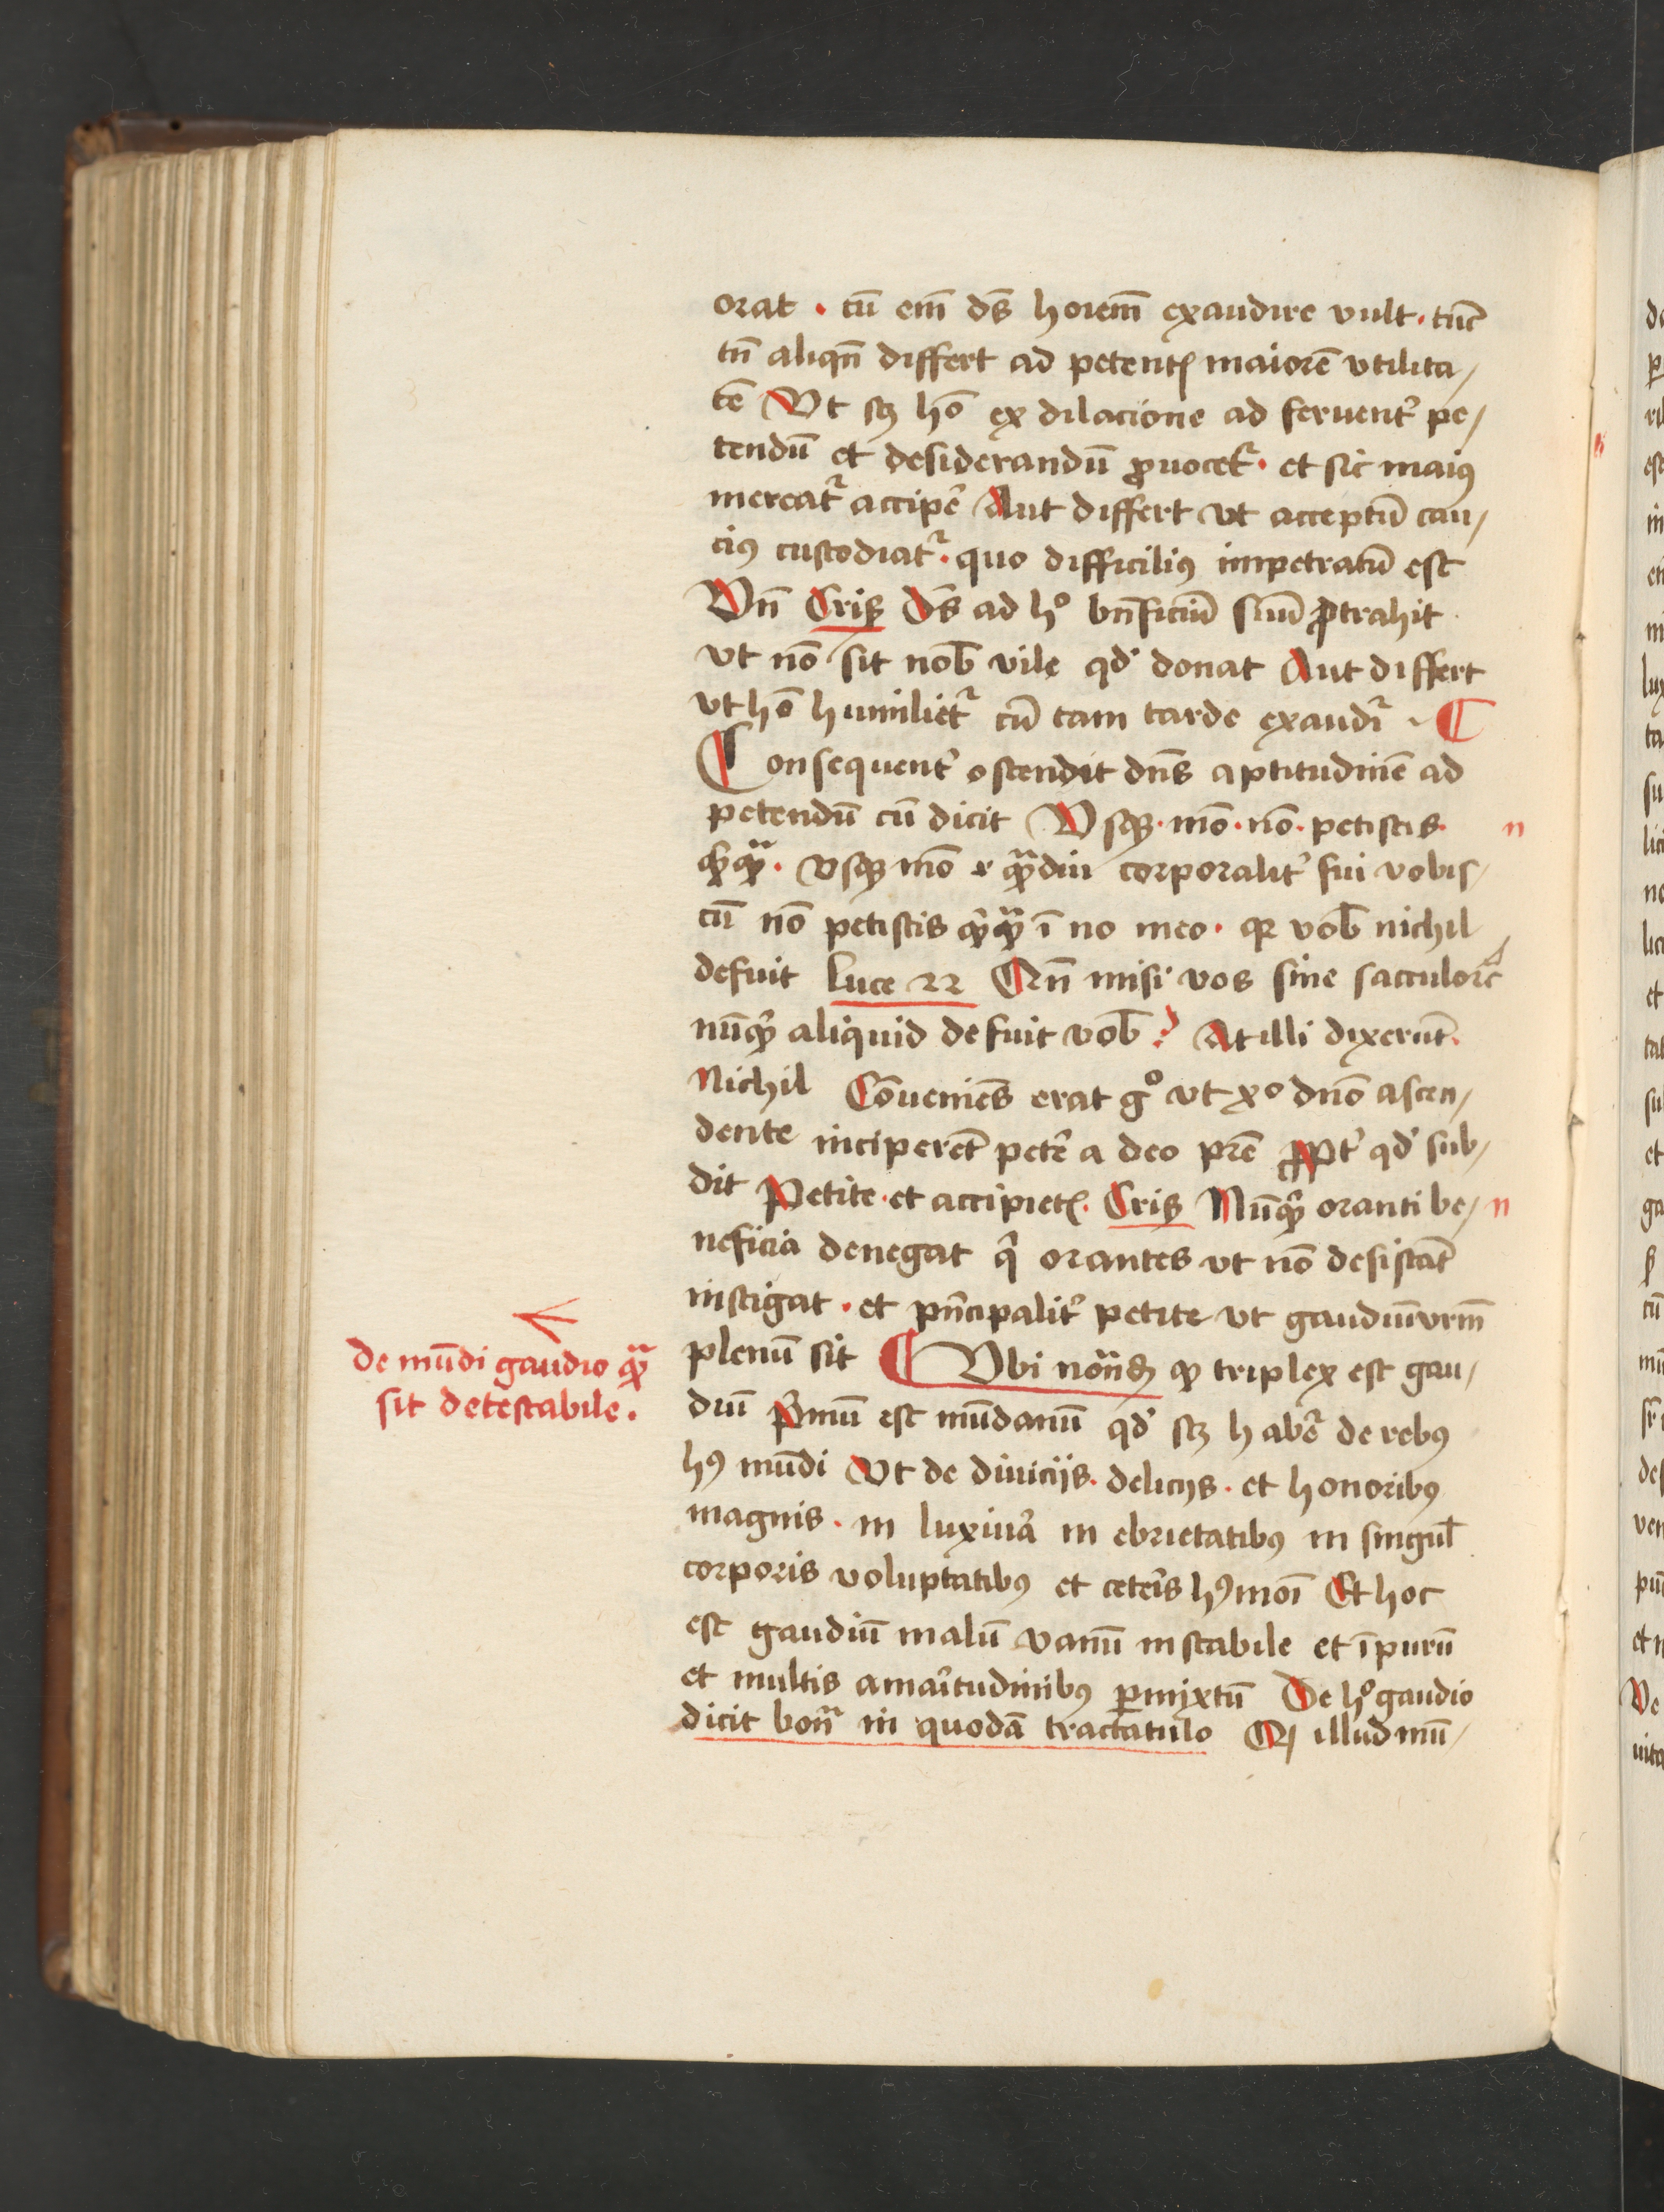 orat . cū em̄ ds̄ hoıem̄ exaudire vult . tūc
tn̄ aliqn̄ differt ad petentꝭ maiorē vtilita/
tē Vt scꝫ hō ex dilacione ad feruentꝰ pe/
tendū et desiderandū ꝓuocetᷣ . et sic maiꝰ
mereatᷣ accipe᷑ Aut differt vt acceptū cau/
ciꝰ custodiatᷣ . quo difficiliꝰ impetratū est
Vn̄ Criß Ds̄ ad hͦ bn̄ficiū suū ꝓtrahit
vt nō sit nob̄ vile qd' donat Aut differt
vt hō humilietᷣ cū tam tarde exaudiᷣ . ¶
Consequent᷑ ostendit dn̄s aptitudinē ad
petendū cū dicit Vsqꝫ . mō . nō . petistis .
qͥcqᷓ . vsqꝫ mō .i. qᷓdiu corporalit᷑ fui vobis/
cū nō petistis qͥcqᷓ ī no meo . qꝛ vob̄ nichil
defuit Luce 22 Qn̄ misi vos sine sacculo ꝛc̄
nūqͥd aliquid defuit vob̄ ? At illi dixerūt .
Nichil Cōueniēs erat gͦ vt xͦ dn̄o ascen/
dente inciperēt pete᷑ a deo pr̄e ꝓpt᷑ qd' sub/
dit Petite . et accipietꝭ . Criß Nūqᷓ oranti be/
neficia denegat qͥ orantes vt nō desistāt
instigat . et pn̄cipalit᷑ petite vt gaudiū vr̄m
plenū sit ¶ Vbi notāđ ꝙ triplex est gau/
diū Pͥmū est mūdanū qd' scꝫ habet᷑ de rebꝰ
hꝰ mūdi Vt de diuiciis . deliciis . et honoribꝰ
magnis . in luxuria in ebrietatibꝰ in singul̄
corporis voluptatibꝰ et ceteris hꝰmōi Et hoc
est gaudiū malū vanū instabile et īpurū
et multis amaritudinibꝰ ꝑmixtū De hͦ gaudio
dicit bonᷓ in quodā tractatulo Q illud mū/
n
n
de mūdi gaudio qᷓ
sit detestabile .